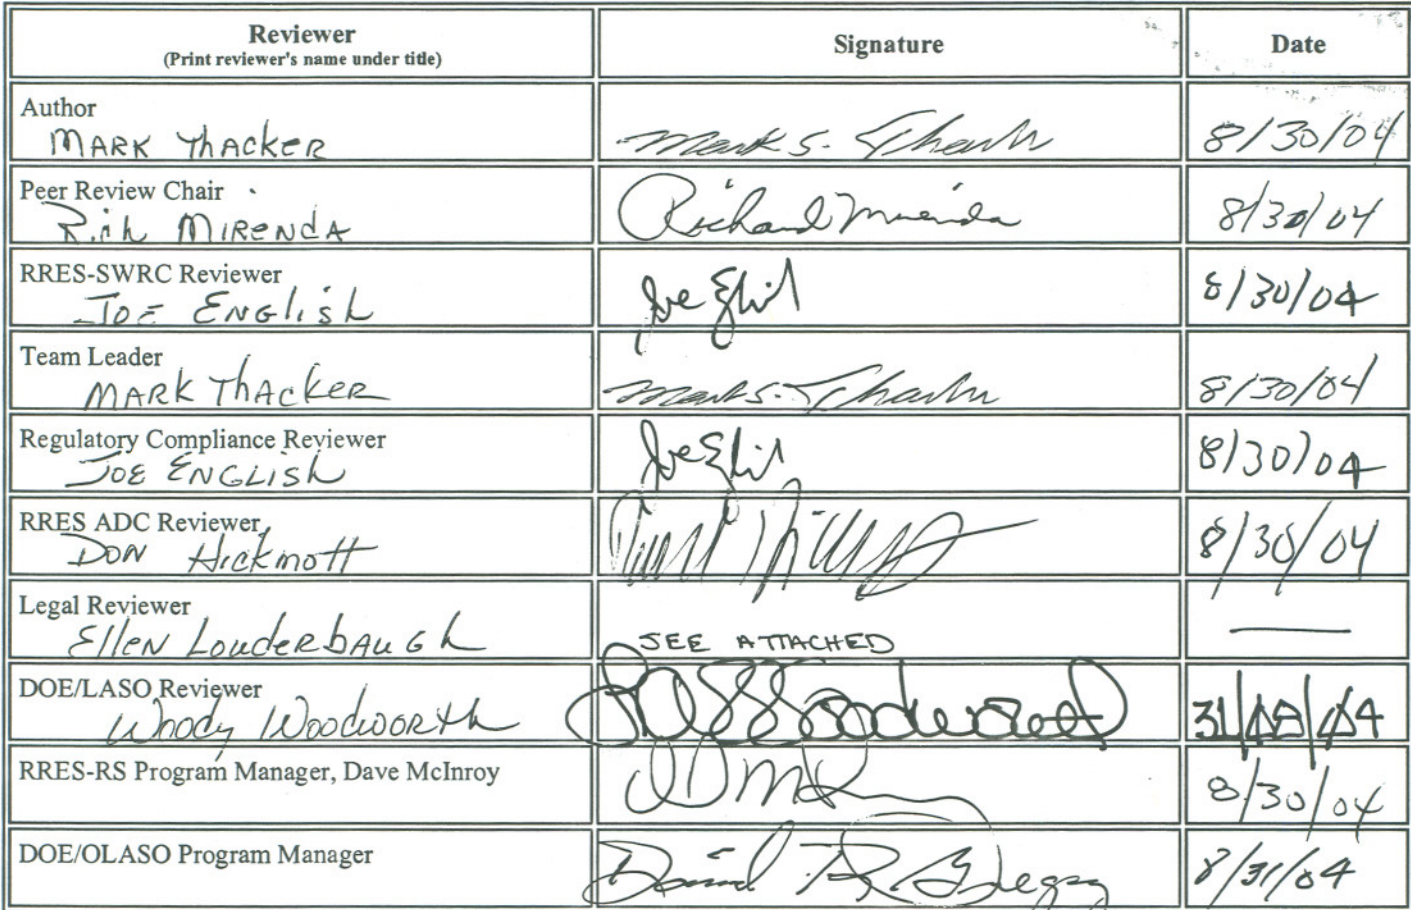 Reviewer
(Print reviewer's name under title)
Signature
Date
Author
MARK THACKER
Mark S. Thacker
8/30/04
Peer Review Chair
Rich MIRENDA
Richard Mirenda
8/30/04
RRES-SWRC Reviewer
JOE ENGlish
Joe English
8/30/04
Team Leader
MARK THACKER
Mark S. Thacker
8/30/04
Regulatory Compliance Reviewer
JOE ENGLISh
Joe English
8/30/04
RRES ADC Reviewer
DON Hickmott
8/30/04
Legal Reviewer
EllEN LouderbAuGh
SEE ATTACHED
DOE/LASO Reviewer
Woody WoodwoRth
Woodworth
31/08/04
RRES-RS Program Manager, Dave McInroy
8/30/04
DOE/OLASO Program Manager
David R. Gregory
8/31/04